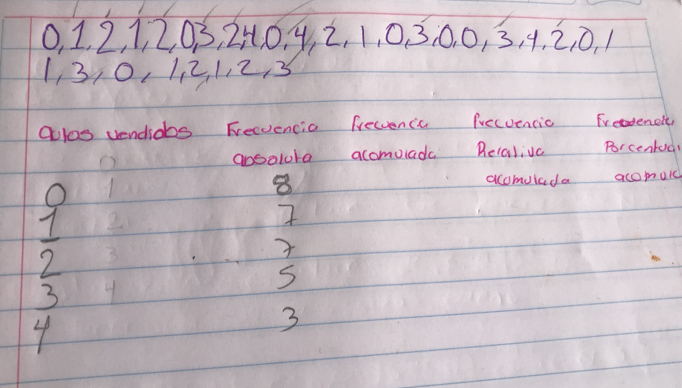 0,1,2,1,2,0,3,2,4,0,4,2,1,0,3,0,0,3,4,2,0,1
1,3,0,1,2,1,2,3
autos vendidos Frecuencia Frecuencia Frecuencia Frecuencia
absoluta acomulada Relativa Porcentual
0 acomulada
0 1 8
1 2 7
2 3 7
3 4 5
4 3